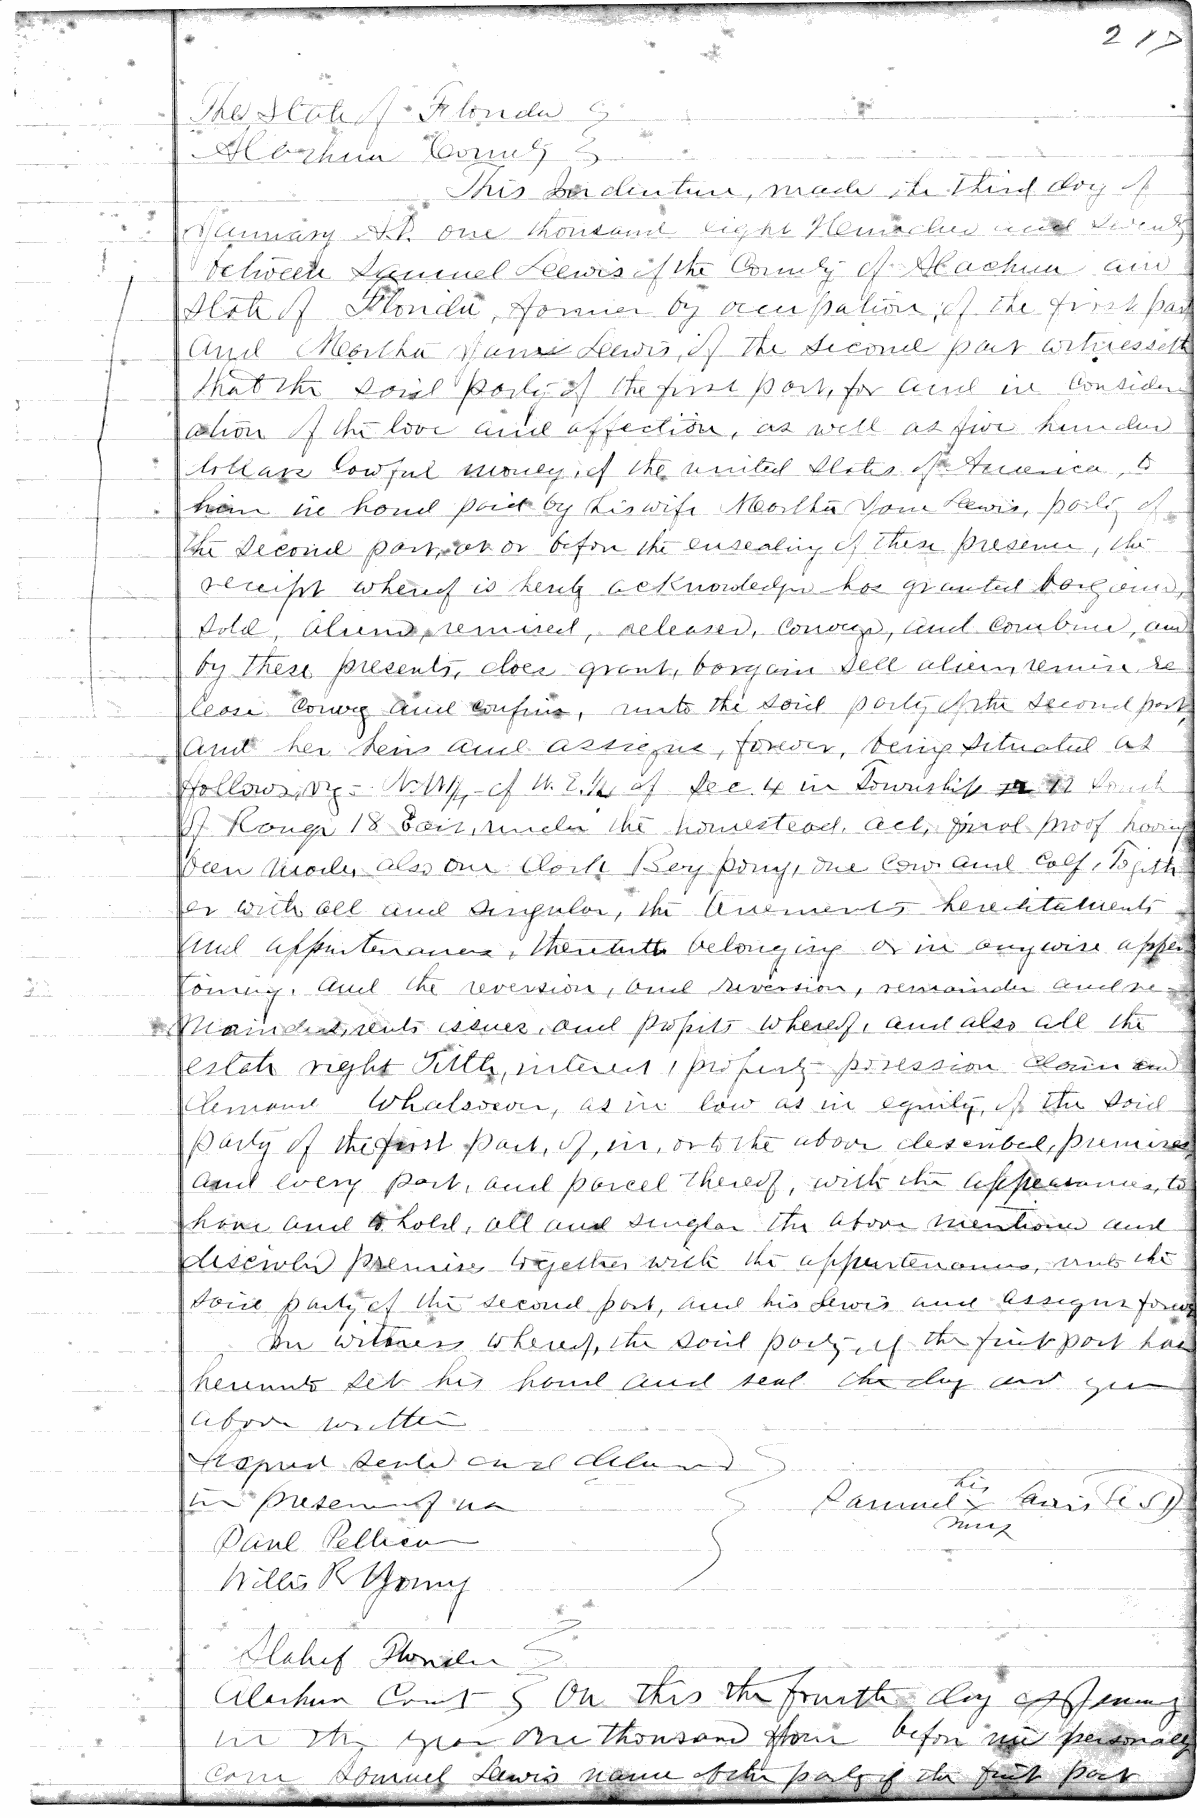 217
The State of Florida
Alachua County
This Indenture, made the third day of
January A.D. one thousand eight Hundred and
between Samuel Lewis of the County of Alachua and
State of Florida, farmer by occupation, of the first part
And Martha Jane Lewis, of the second part witnesseth
that the said party of the first part, for and in consider
ation of the love and affection, as well as five hundred
dollars lawful money, of the united States of America, to
him in hand paid by his wife Martha Jane Lewis, party of
the second part, at or before the ensealing of these presence, the
receipt whereof is hereby acknowledge has granted bargained,
sold, aliened, remised, released, convey, and combine, and
by these presents, does grant, bargain sell alien, remise re
lease convey and confirm, unto the said party of the second part,
and her heirs and assigns, forever, being situated as
follows, viz - N.W¼, of N.E.¼ of Sec. 4 in Township 12 South
of Range 18 East, under the homestead, act, final proof having
been made, also one dark Bay pony, one cow and calf, Togeth
er with all and singular, the tenements hereditatuents
and appurtenances, thereunto belonging or in anywise apper
taining, and the reversion, and reversion, remainder and re-
mainders, rents issues, and profits whereof, and also all the
estate right Title, interest, property possession claim and
demand Whatsoever, as in law as in equity, of the said
party of the first part, of, in, or to the above described, premises,
and every part, and parcel thereof, with the appearances, to
have and to hold, all and singlar the above mentioned and
described premises together with the appurtenances, unto the
said party of the second part, and his Lewis and assigns forever
In witness whereof, the said party, of the first part has
hereunto set his hand and seal the day and year
above written
Signed sealed and delivered
in presence of us
his
Samuel x Lewis
mark
Paul Pellicer
Willis R Young
State of Florida
Alachua Count On this the fourth day of January
in the year one thousand before me personally
came Samuel Lewis name of the party of the first part